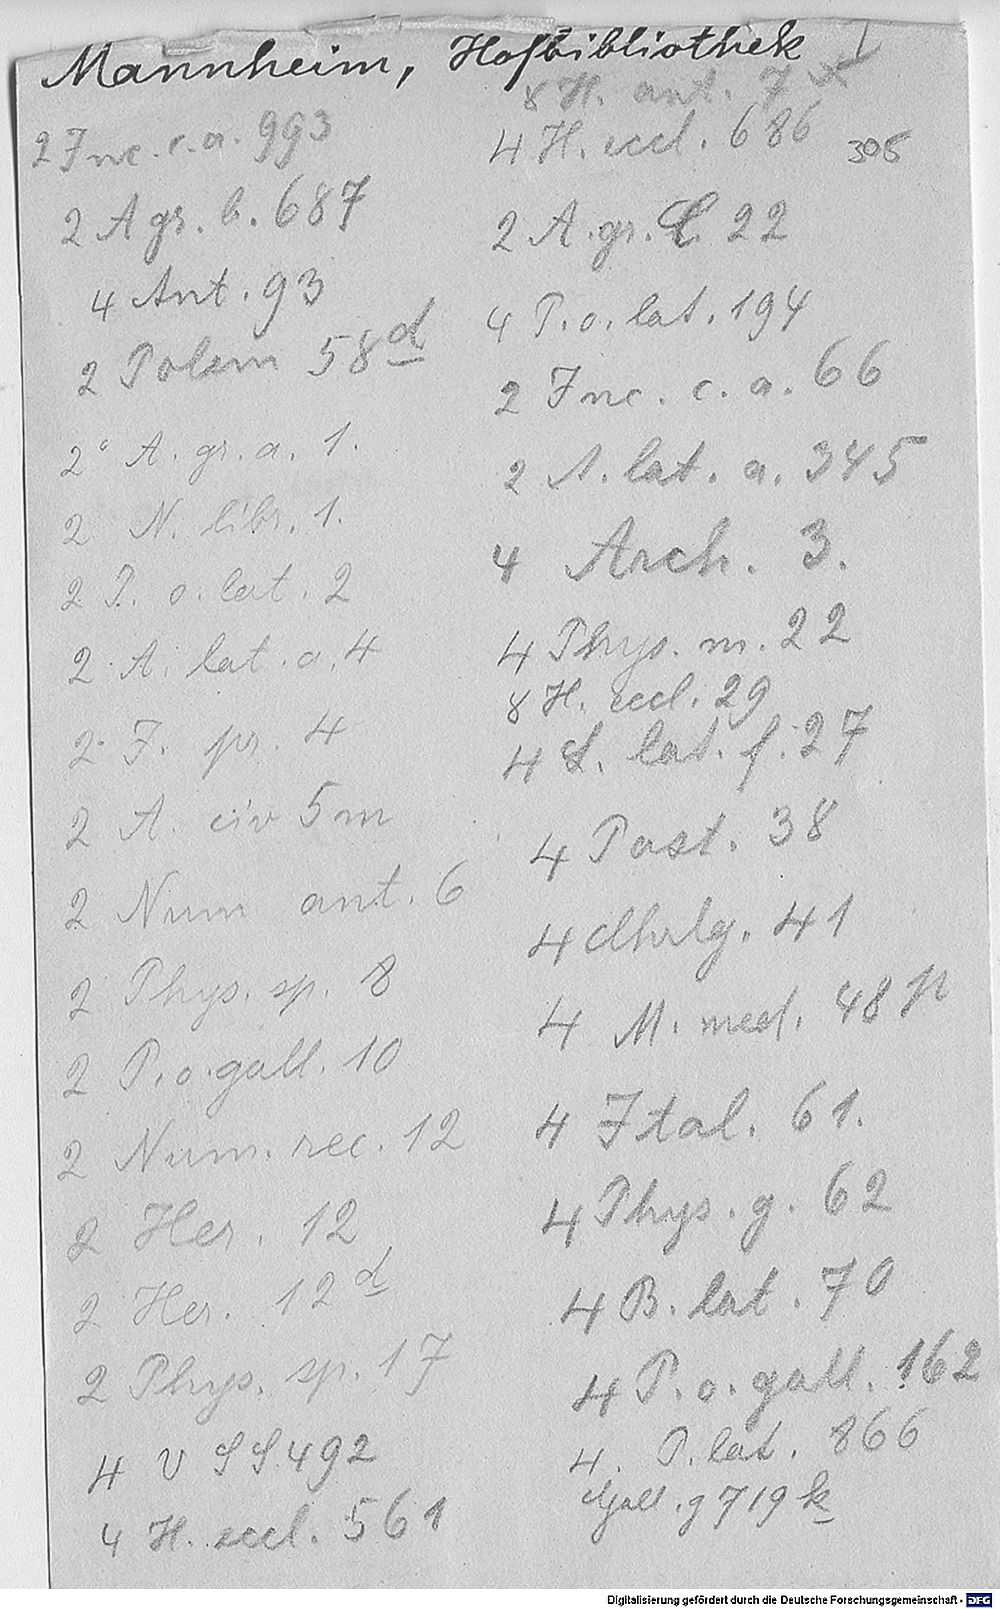 Mannheim, Hofbibliothek
2 Inc. c. a. 993
2 A gr. b. 687
4 Ant. 93
2 Polem 58 d
2° A. gr. a. 1.
2 N. libr. 1.
2 P. o. lat. 2
2 A. lat. a. 4
2 J. pr. 4
2 A. civ 5 m
2 Num ant. 6
2 Phys. sp. 8
2 P. o. gall. 10
2 Num. rec. 12
2 Her. 12
2 Her. 12 d
2 Phys. sp. 17
4 V SS 492
4 H. eccl. 561
8 H. ant. 7
4 H. eccl. 686 305
2 A. gr. 22
4 P. o. lat. 194
2 Inc. c. a. 66
2 A. lat. a. 345
4 Arch. 3.
4 Phys. m. 22
8 H. eccl. 29
4 L. lat. f. 27
4 Past. 38
4 41
4 M. med. 48 p
4 Ital. 61.
4 Phys. g. 62
4 B. lat. 70
4 P. o. gall. 162
4. P. lat. 866
Gall. g 719 k
Digitalisierung gefördert durch die Deutsche Forschungsgemeinschaft - DFG